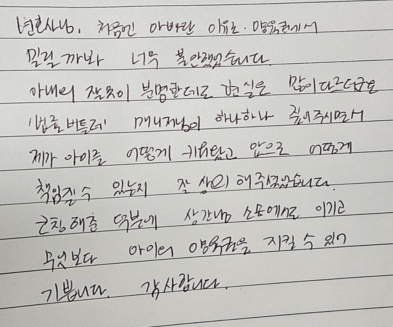 변호사님, 처음엔 아빠란 이유로 양육권에서
밀릴 까봐 너무 불안했었습니다.
아내의 잘못이 분명한데도 현실은 많이 다르더군요
'법률버틀러' 매니저님이 하나하나 짚어주시면서
제가 아이를 어떻게 키워왔고 앞으로 어떻게
책임질 수 있는지 잘 상의 해주셨었습니다.
긍정해준 덕분에 상간녀 소송에서도 이기고
무엇보다 아이의 양육권을 지킬 수 있어
기쁩니다. 감사합니다.